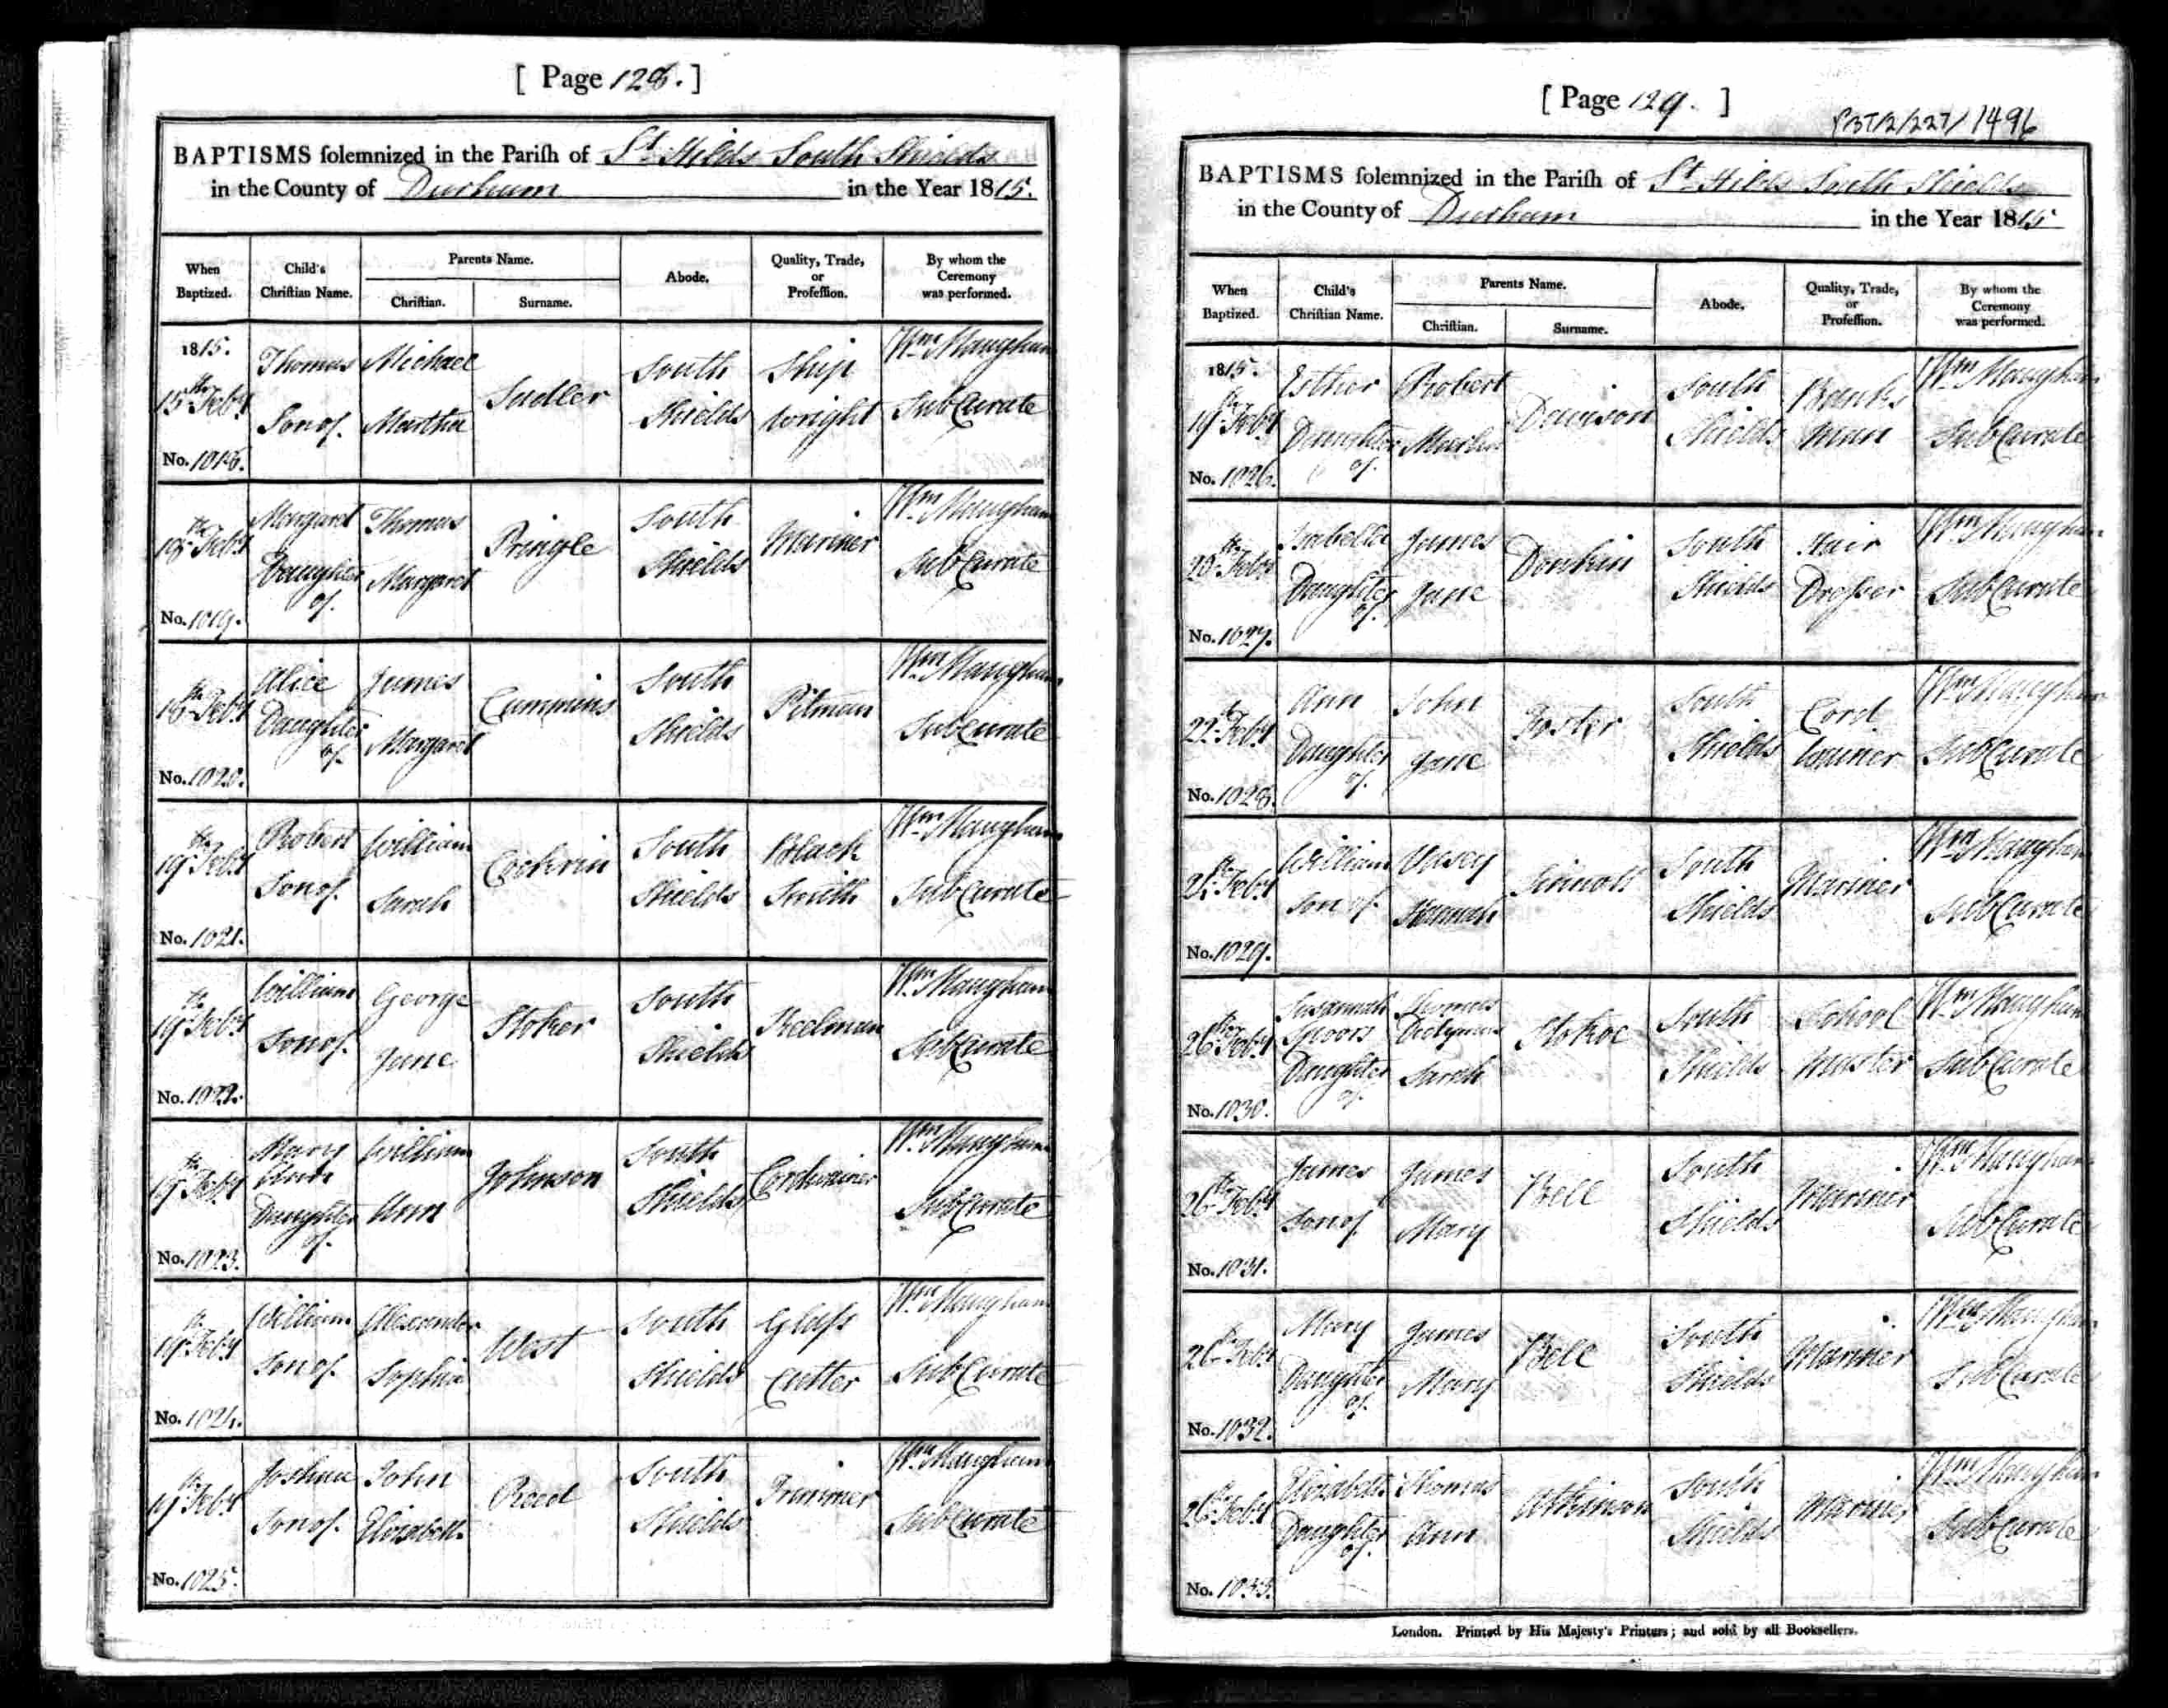 [ Page 128. ]
BAPTISMS solemnized in the Parish of St. Hilds South Shields
in the County of Durham in the Year 1815.
When Baptized.
Child's Christian Name.
Parents Name.
Christian.
Surname.
Abode.
Quality, Trade, or Profession.
By whom the Ceremony was performed.
1815.
15th Feby
No. 1018.
Thomas
Son of.
Michael
Martha
Sadler
South
Shields
Ship
wright
Wm Maughan
Sub Curate
18th Feby
No. 1019.
Margaret
Daughter
of.
Thomas
Margaret
Pringle
South
Shields
Mariner
Wm Maughan
Sub Curate
18th Feby
No. 1020.
Alice
Daughter
of.
James
Margaret
Cummins
South
Shields
Pitman
Wm Maughan
Sub Curate
19th Feby
No. 1021.
Robert
Son of.
William
Sarah
Cockrin
South
Shields
Black
Smith
Wm Maughan
Sub Curate
19th Feby
No. 1022.
William
Son of.
George
Jane
Stoker
South
Shields
Keelman
Wm Maughan
Sub Curate
19th Feby
No. 1023.
Mary
Ann
Daughter
of.
William
Ann
Johnson
South
Shields
Cordwainer
Wm Maughan
Sub Curate
19th Feby
No. 1024.
William
Son of.
Alexander
Sophia
West
South
Shields
Glass
Cutter
Wm Maughan
Sub Curate
19th Feby
No. 1025.
Joshua
Son of.
John
Elizabeth
Reed
South
Shields
Trimmer
Wm Maughan
Sub Curate
[ Page 129. ]
PBT/2/227/1496
BAPTISMS solemnized in the Parish of St. Hilds South Shields
in the County of Durham in the Year 1815
When Baptized.
Child's Christian Name.
Parents Name.
Christian.
Surname.
Abode.
Quality, Trade, or Profession.
By whom the Ceremony was performed.
1815.
19th Feby
No. 1026.
Esther
Daughter
of.
Robert
Davison
South
Shields
Banks
man
Wm Maughan
Sub Curate
20th Feby
No. 1027.
Isabella
Daughter
of.
James
Jane
Donkin
South
Shields
Hair
Dresser
Wm Maughan
Sub Curate
22d Feby
No. 1028.
Ann
Daughter
of.
John
Jane
Foster
South
Shields
Cord
wainer
Wm Maughan
Sub Curate
Feby
No. 1029.
William
Son of.
Vasey
Hannah
South
Shields
Mariner
Wm Maughan
Sub Curate
26th Feby
No. 1030.
Susannah
Spoors
Daughter
of.
Thomas
Didymus
Sarah
Stokoe
South
Shields
School
Master
Wm Maughan
Sub Curate
26th Feby
No. 1031.
James
Son of.
James
Mary
Bell
South
Shields
Mariner
Wm Maughan
Sub Curate
26th Feby
No. 1032.
Mary
Daughter
of.
James
Mary
Bell
South
Shields
Mariner
Wm Maughan
Sub Curate
26th Feby
No. 1033.
Elizabeth
Daughter
of.
Thomas
Ann
Atkinson
South
Shields
Mariner
Wm Maughan
Sub Curate
London. Printed by His Majesty's Printers; and sold by all Booksellers.